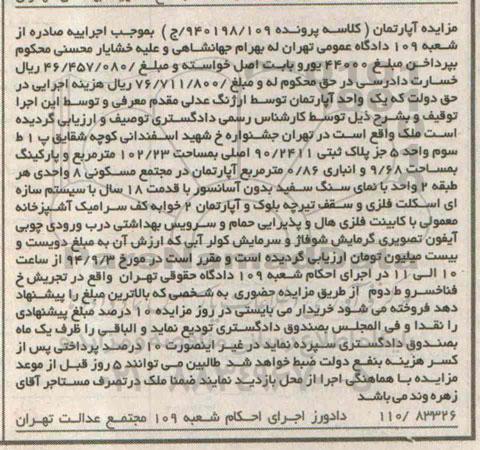 مزایده آپارتمان ( کلاسه پرونده ۹۴۰۱۹۸/۱۰۹/ج ) بموجب اجراییه صادره از
شعبه ۱۰۹ دادگاه عمومی تهران له بهرام جهانشاهی و علیه خشایار محسنی محکوم
بپرداخن مبلغ ۴۴۰۰۰ یورو بابت اصل خواسته و مبلغ /۴۶/۴۵۷/۰۸۰ ریال
خسارت دادرسی در حق محکوم له و مبلغ /۷۶/۷۱۱/۸۰۰ ریال هزینه اجرایی در
حق دولت که یک واحد آپارتمان توسط ارژنگ عدلی مقدم معرفی و توسط این اجرا
توقیف و بشرح ذیل توسط کارشناس رسمی دادگستری توصیف و ارزیابی گردیده
است ملک واقع است در تهران جشنواره خ شهید اسفندانی کوچه شقایق پ ۱ ط
سوم واحد ۵ جز پلاک ثبتی ۹۰/۲۴۱۱ اصلی بمساحت ۱۰۲/۲۳ مترمربع و پارکینگ
بمساحت ۹/۶۸ و انباری ۰/۸۶ مترمربع آپارتمان در مجتمع مسکونی ۸ واحدی هر
طبقه ۲ واحد با نمای سنگ سفید بدون آسانسور با قدمت ۱۸ سال با سیستم سازه
ای اسکلت فلزی و سقف تیرچه بلوک و آپارتمان ۲ خوابه کف سرامیک آشپزخانه
معمولی با کابینت فلزی هال و پذیرایی حمام و سرویس بهداشتی درب ورودی چوبی
آیفون تصویری گرمایش شوفاژ و سرمایش کولر آبی که ارزش آن به مبلغ دویست و
بیست میلیون تومان ارزیابی گردیده است و مقرر است در مورخ ۹۴/۹/۳ از ساعت
۱۰ الی ۱۱ در اجرای احکام شعبه ۱۰۹ دادگاه حقوقی تهران واقع در تجریش خ
فناخسرو ط دوم از طریق مزایده حضوری به شخصی که بالاترین مبلغ را پیشنهاد
دهد فروخته می شود خریدار می بایستی در روز مزایده ۱۰ درصد مبلغ پیشنهادی
را نقدا و فی المجلس بصندوق دادگستری تودیع نماید و الباقی را ظرف یک ماه
بصندوق دادگستری سپرده نماید در غیر اینصورت ۱۰ درصد پرداختی پس از
کسر هزینه بنفع دولت ضبط خواهد شد طالبین می توانند ۵ روز قبل از موعد
مزایده با هماهنگی اجرا از محل بازدید نمایند ضمنا ملک در تصرف مستاجر آقای
زهره وند می باشد
۱۱۰/ ۸۳۳۲۶ دادورز اجرای احکام شعبه ۱۰۹ مجتمع عدالت تهران